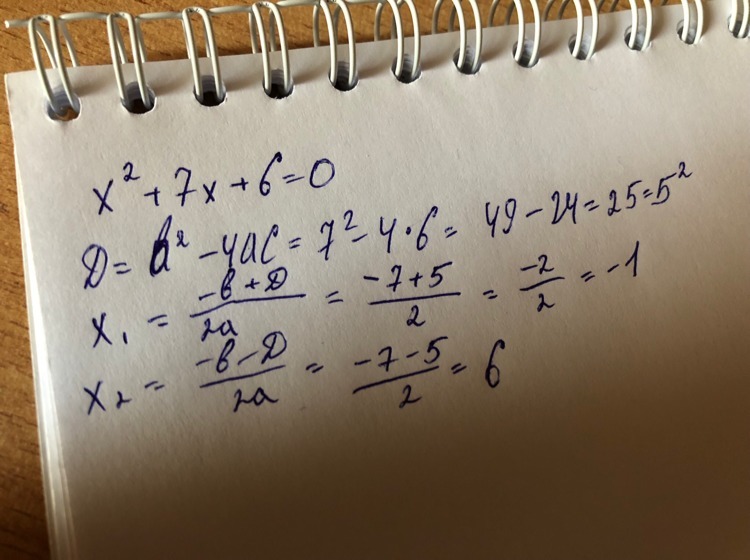 x² + 7x + 6 = 0
D = b² - 4ac = 7² - 4·6 = 49 - 24 = 25 = 5²
x₁ = (-b + D)/2a = (-7 + 5)/2 = -2/2 = -1
x₂ = (-b - D)/2a = (-7 - 5)/2 = 6